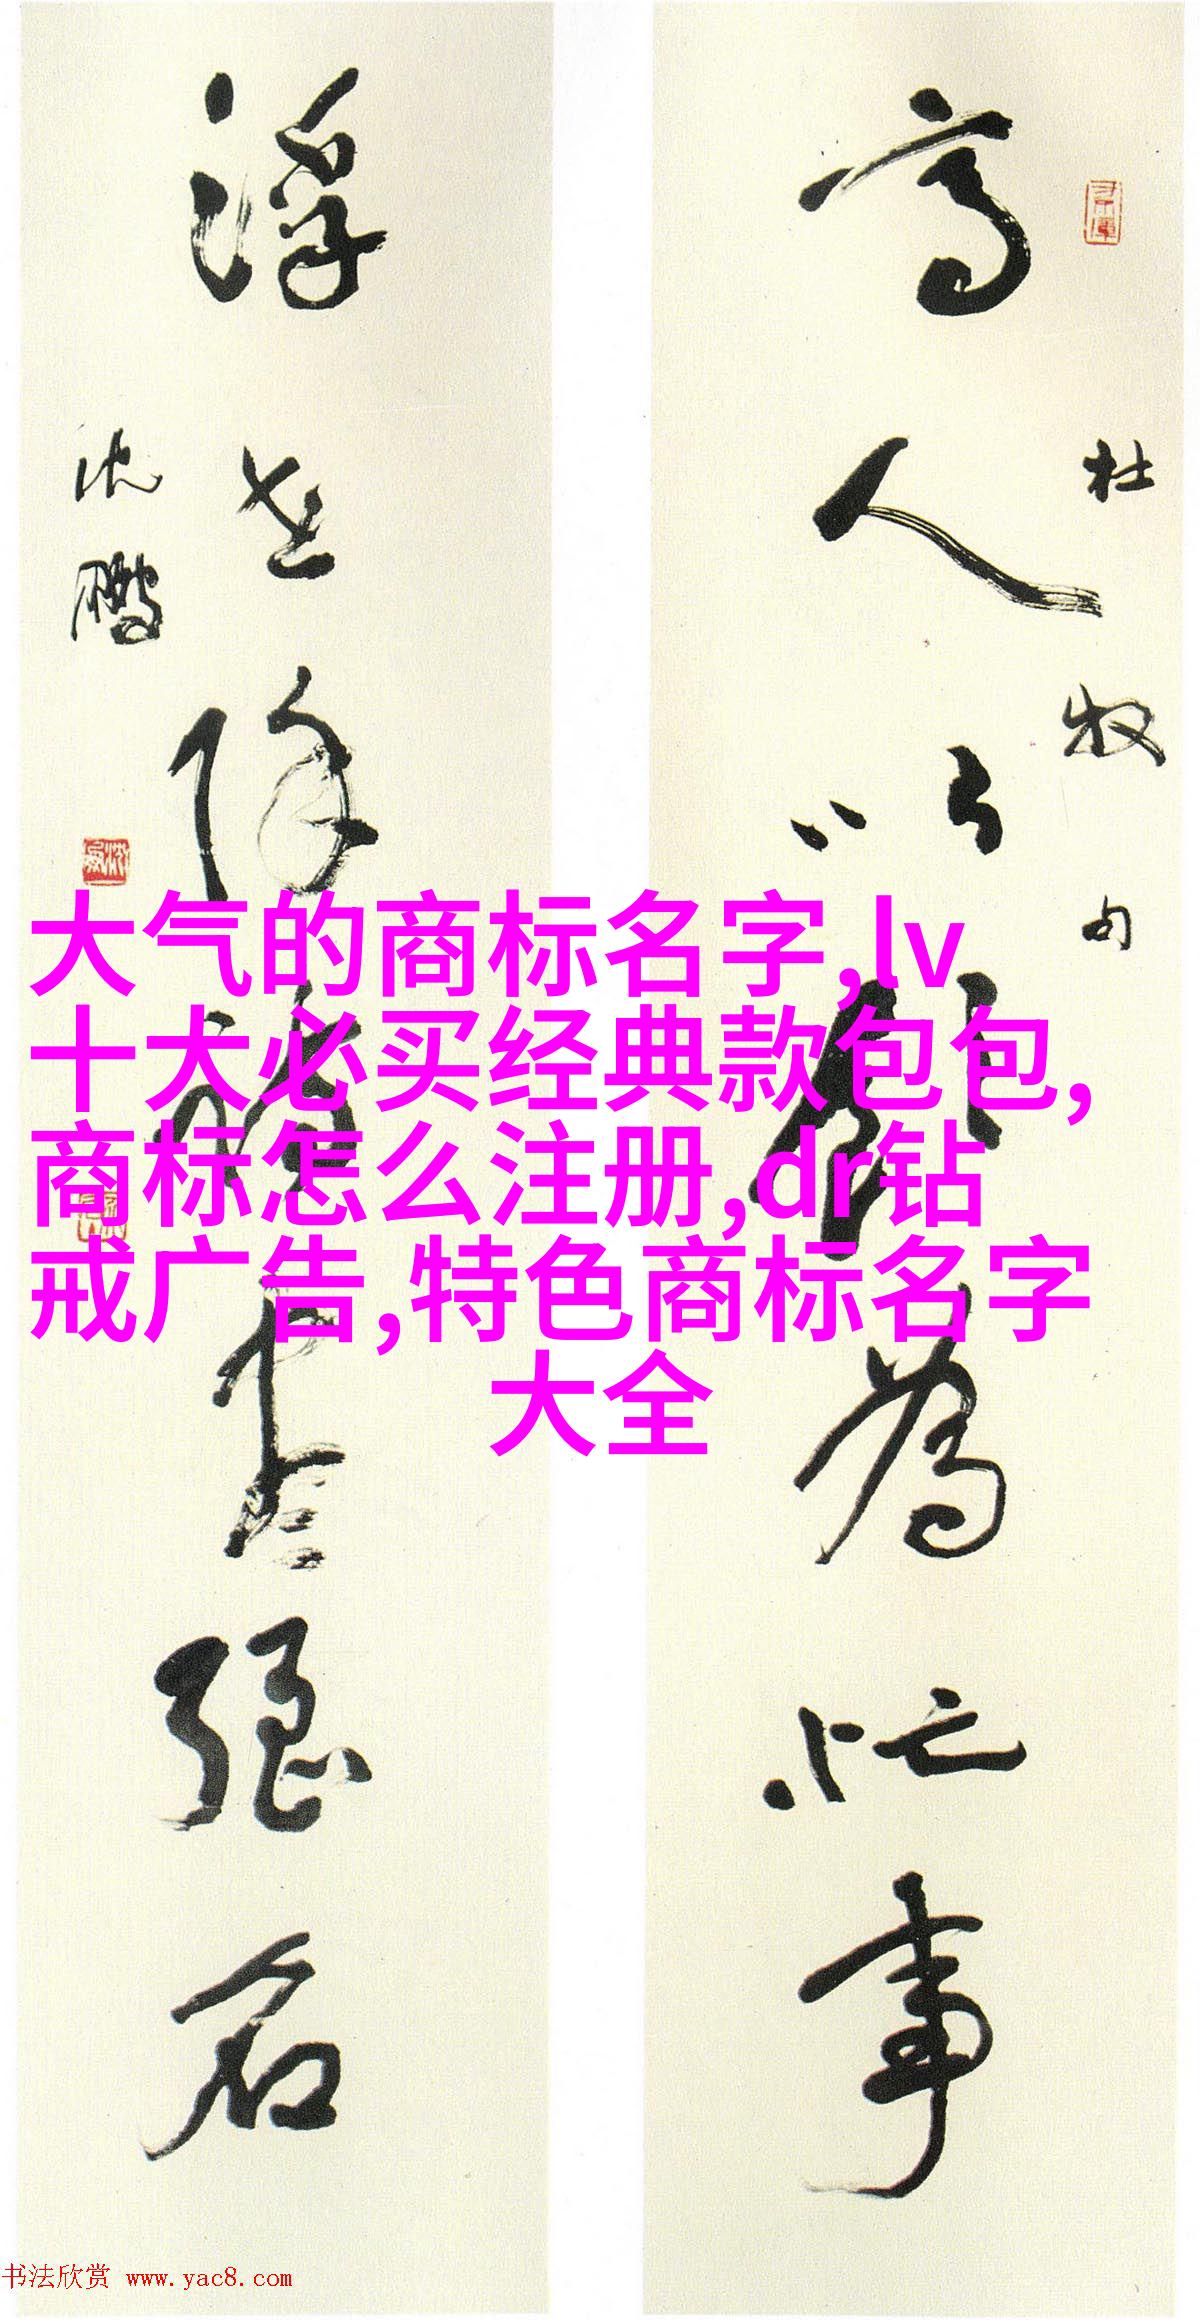 杜牧句
高人以飲為忙事
浮世除詩盡強名
沈鵬
大气的商标名字,lv
十大必买经典款包包,
商标怎么注册,dr钻
戒广告,特色商标名字
大全
书法欣赏 www.yac8.com